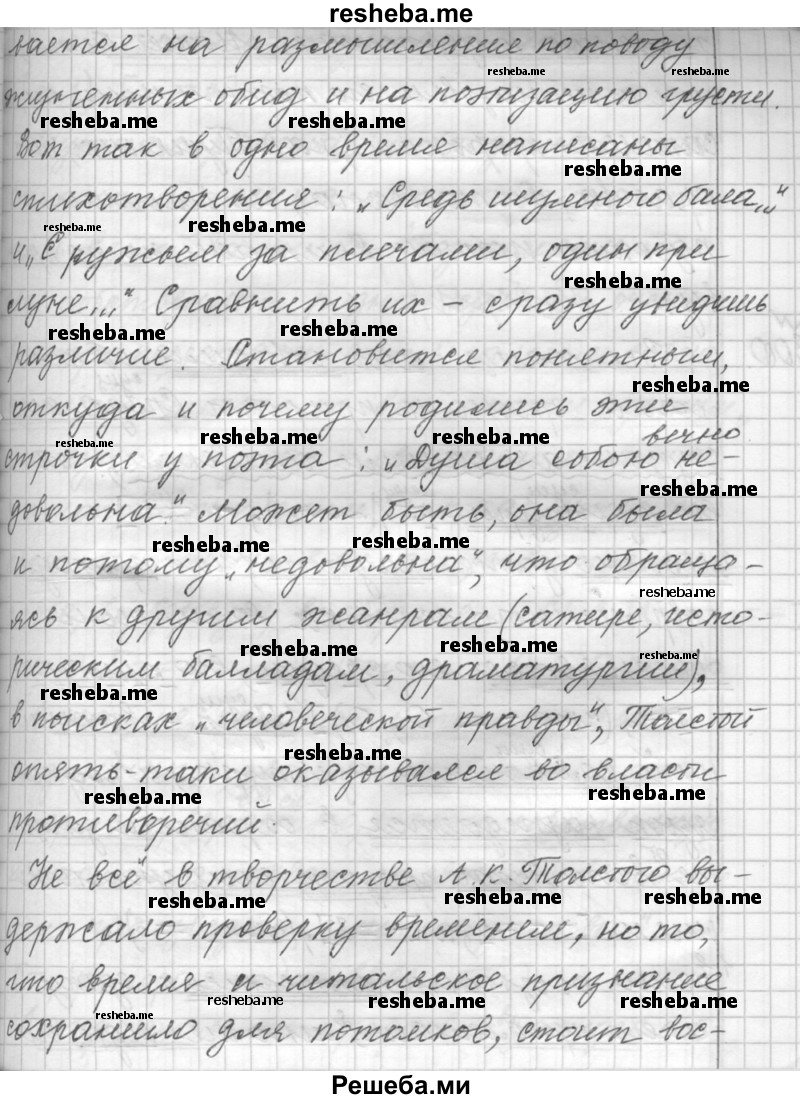 resheba.me
вается на размышления по поводу
resheba.me resheba.me
жизненных обид и на поэтизацию грусти.
resheba.me resheba.me
Вот так в одно время написаны
resheba.me
стихотворения: „Средь шумного бала..."
resheba.me resheba.me
и „С ружьем за плечами, один при
resheba.me
луне..." Сравнить их – сразу увидишь
resheba.me resheba.me
различие. Становится понятным,
resheba.me
откуда и почему родились эти
resheba.me resheba.me resheba.me вечно
строчки у поэта: „Душа собою не-
resheba.me
довольна." Может быть, она была
resheba.me resheba.me
и потому „недовольна", что обраща-
resheba.me
ясь к другим жанрам (сатире, исто-
resheba.me resheba.me resheba.me
рическим балладам, драматургии),
resheba.me
в поисках „человеческой правды", Толстой
resheba.me
опять-таки оказывался во власти
resheba.me resheba.me
противоречий.
Не всё в творчестве А.К. Толстого вы-
resheba.me resheba.me resheba.me
держало проверку временем, но то,
что время и читальское признание
resheba.me resheba.me resheba.me
сохранило для потомков, стоит вос-
Решеба.ми